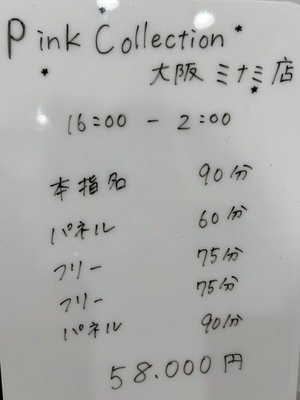 Pink Collection
大阪ミナミ店
16:00 - 2:00
本指名 90分
パネル 60分
フリー 75分
フリー 75分
パネル 90分
58.000円